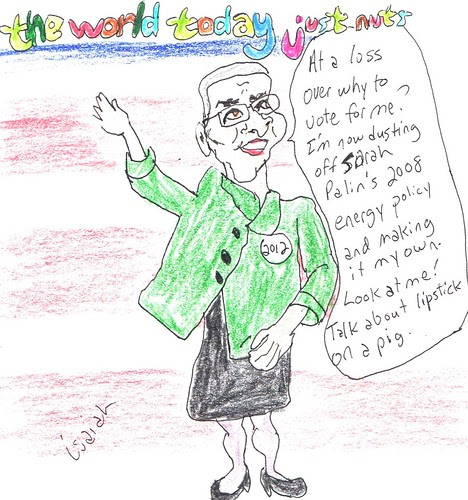 the world today just nuts
At a loss
over why to
vote for me?
I'm now dusting
off Sarah
Palin's 2008
energy policy
and making
it my own.
Look at me!
Talk about lipstick
on a pig.
2012
isaiah